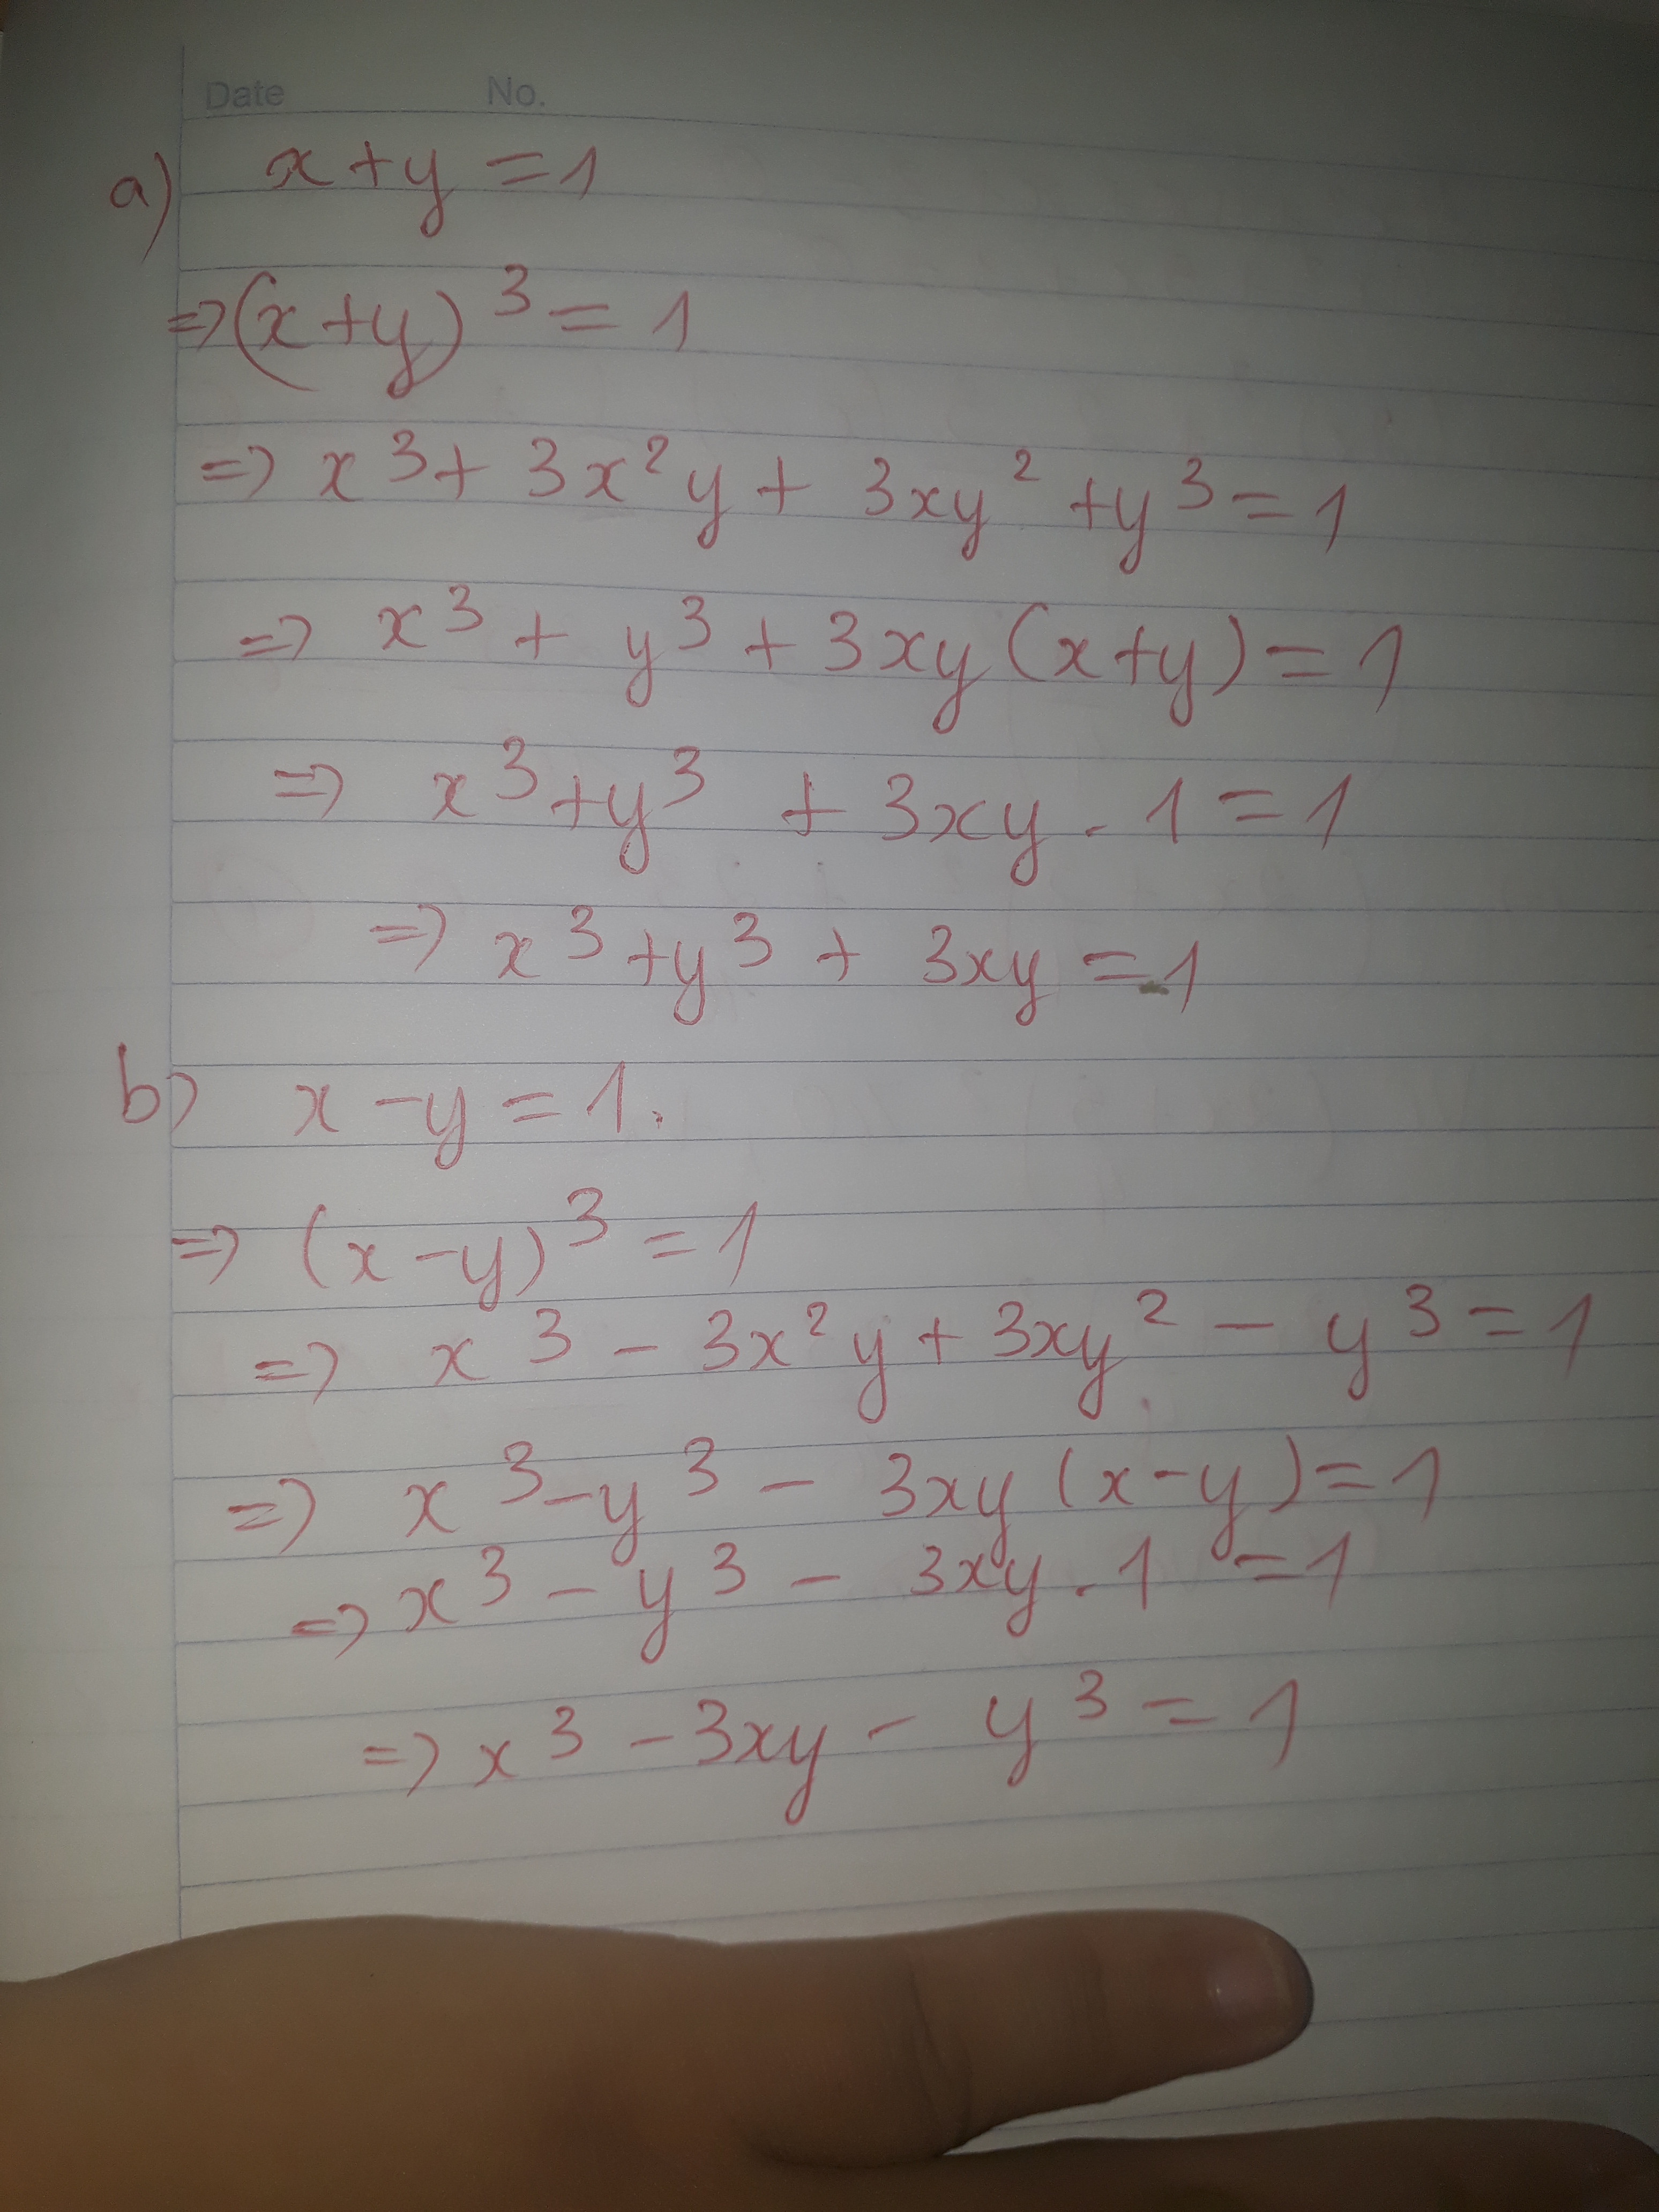 Date No.
a) x+y=1
=> (x+y)³=1
=> x³+3x²y+3xy²+y³=1
=> x³+y³+3xy(x+y)=1
=> x³+y³+3xy.1=1
=> x³+y³+3xy=1
b) x-y=1.
=> (x-y)³=1
=> x³-3x²y+3xy²-y³=1
=> x³-y³-3xy(x-y)=1
=> x³-y³-3xy.1=1
=> x³-3xy-y³=1